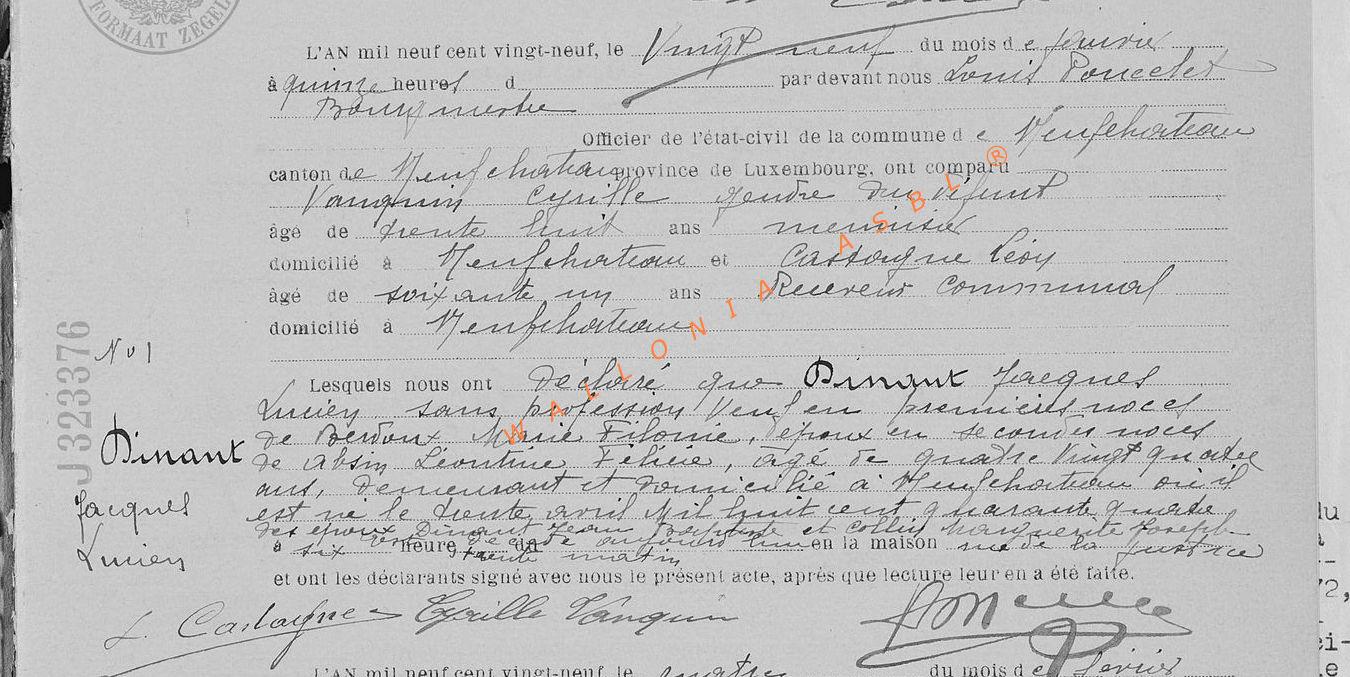 FORMAAT ZEGEL
L'AN mil neuf cent vingt-neuf, le Vingt neuf du mois de janvier
à quinze heures d par devant nous Louis Poncelet
Bourgmestre
Officier de l'état-civil de la commune de Neufchateau
canton de Neufchateau province de Luxembourg, ont comparu
Vanquin Cyrille gendre du défunt
âgé de trente huit ans menuisier
domicilié à Neufchateau et Castagne Léon
âgé de soixante un ans Receveur Communal
domicilié à Neufchateau
Lesquels nous ont déclaré que Dinant Jacques
Lucien sans profession Veuf en premières noces
de Berdoux Marie Filonie, époux en secondes noces
de Absin Léontine Félicie, agé de quatre Vingt quatre
ans, demeurant et domicilié à Neufchateau où il
est né le trente avril Mil huit cent quarante quatre
des époux Dinant Jean Baptiste et Collin Marguerite Joseph-
est décédé aujourd'hui
à six heure trente du matin en la maison rue de la Justice
et ont les déclarants signé avec nous le présent acte, après que lecture leur en a été faite.
L. Castagne Cyrille Vanquin
N° 1
Dinant
Jacques
Lucien
J 323376
WALLONIA ASBL ®
L'AN mil neuf cent vingt-neuf, le quatre du mois de février